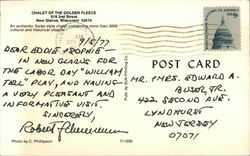 CHALET OF THE GOLDEN FLEECE
618 2nd Street
New Glarus, Wisconsin 53574
An authentic Swiss style chalet containing more than 3000
cultural and historical objects.
9/5/77
DEAR EDDIE + SOPHIE—
IN NEW GLARUS FOR
THE LABOR DAY "WILLIAM
TELL" PLAY, AND HAVING
A VERY PLEASANT AND
INFORMATIVE VISIT.
SINCERELY,
Robert
Photo by C. Phillipson
711209
POST CARD
MR. & MRS. EDWARD A.
BUSER, JR.
422 SECOND AVE.
LYNDHURST
NEW JERSEY
07071